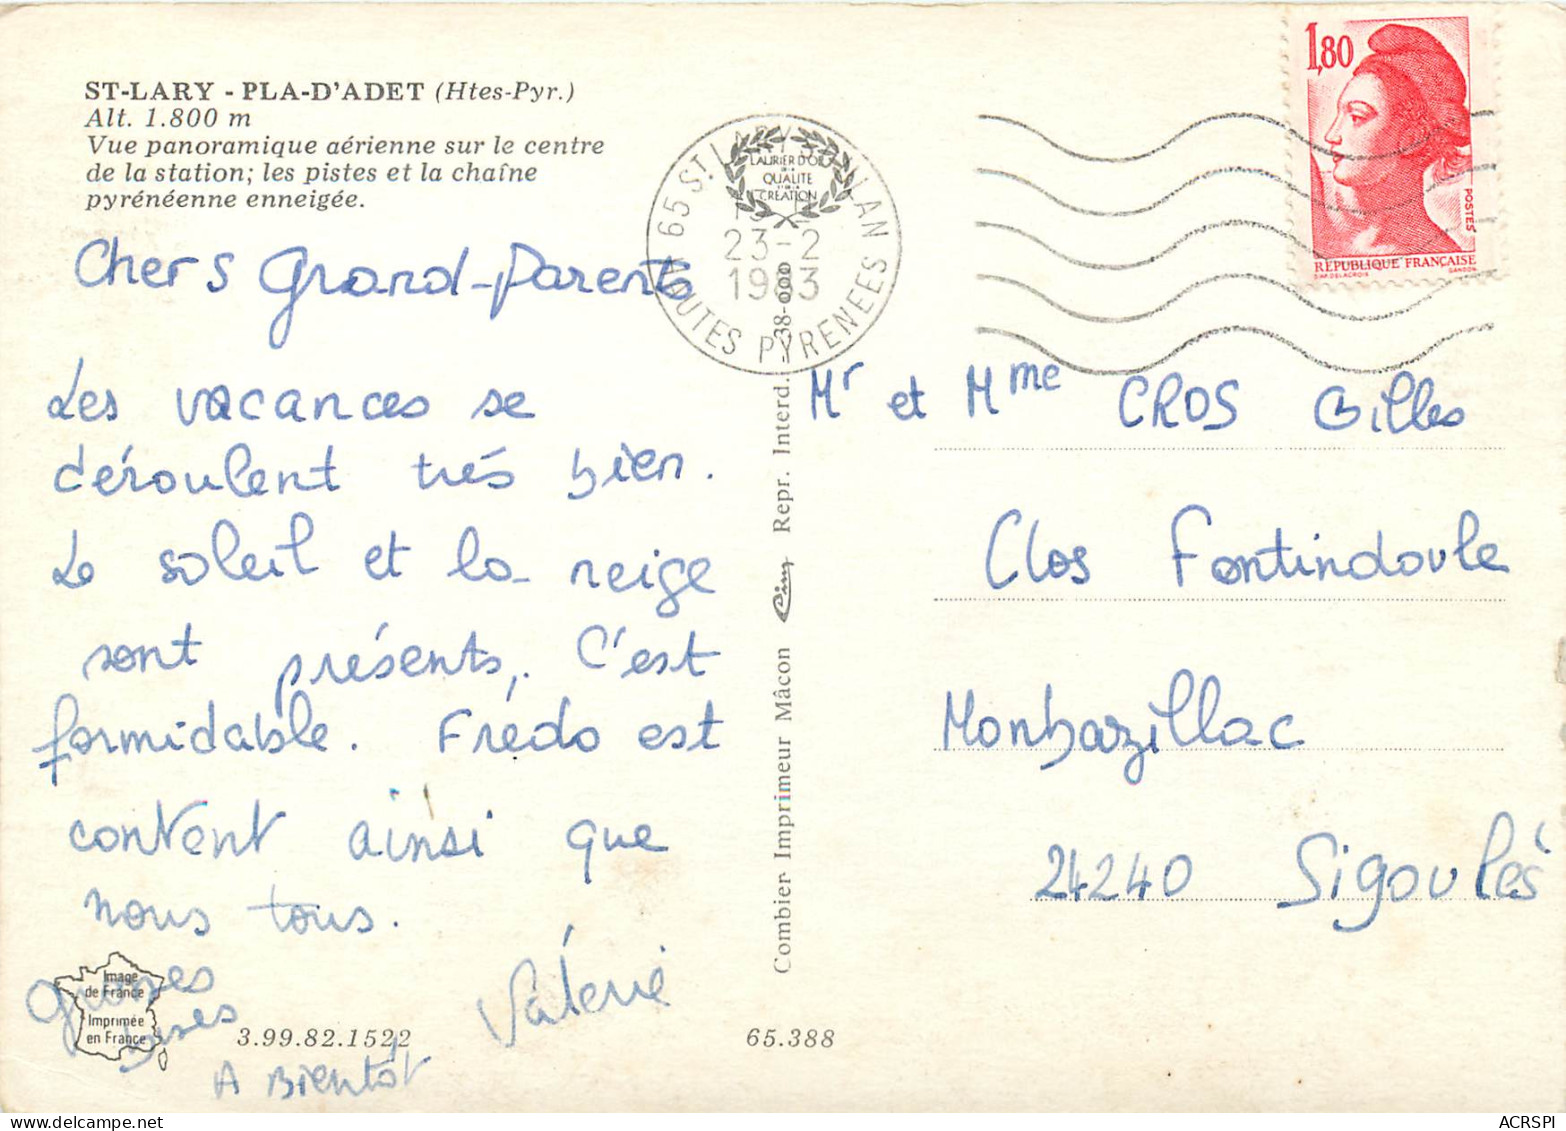 ST-LARY - PLA-D'ADET (Htes-Pyr.)
Alt. 1.800 m
Vue panoramique aérienne sur le centre
de la station; les pistes et la chaîne
pyrénéenne enneigée.
Chers Grand-Parents
Les vacances se
déroulent très bien.
Le soleil et la neige
sont présents, C'est
formidable. Frédo est
content ainsi que
nous tous.
Grosses
bises
Valérie
A Bientôt
Image
de France
Imprimée
en France
3.99.82.1522
65.388
Combier Imprimeur Mâcon Cim Repr. Interd. 38-000
65 ST LARY SOULAN
HAUTES PYRENEES
23-2
1983
LAURIER D'OR
DE LA
QUALITE
ET DE LA
CREATION
1,80
POSTES
RÉPUBLIQUE FRANÇAISE
D'AP. DELACROIX GANDON
Mr et Mme CROS Gilles
Clos Fontindoule
Monbazillac
24240 Sigoulès
ACRSPI